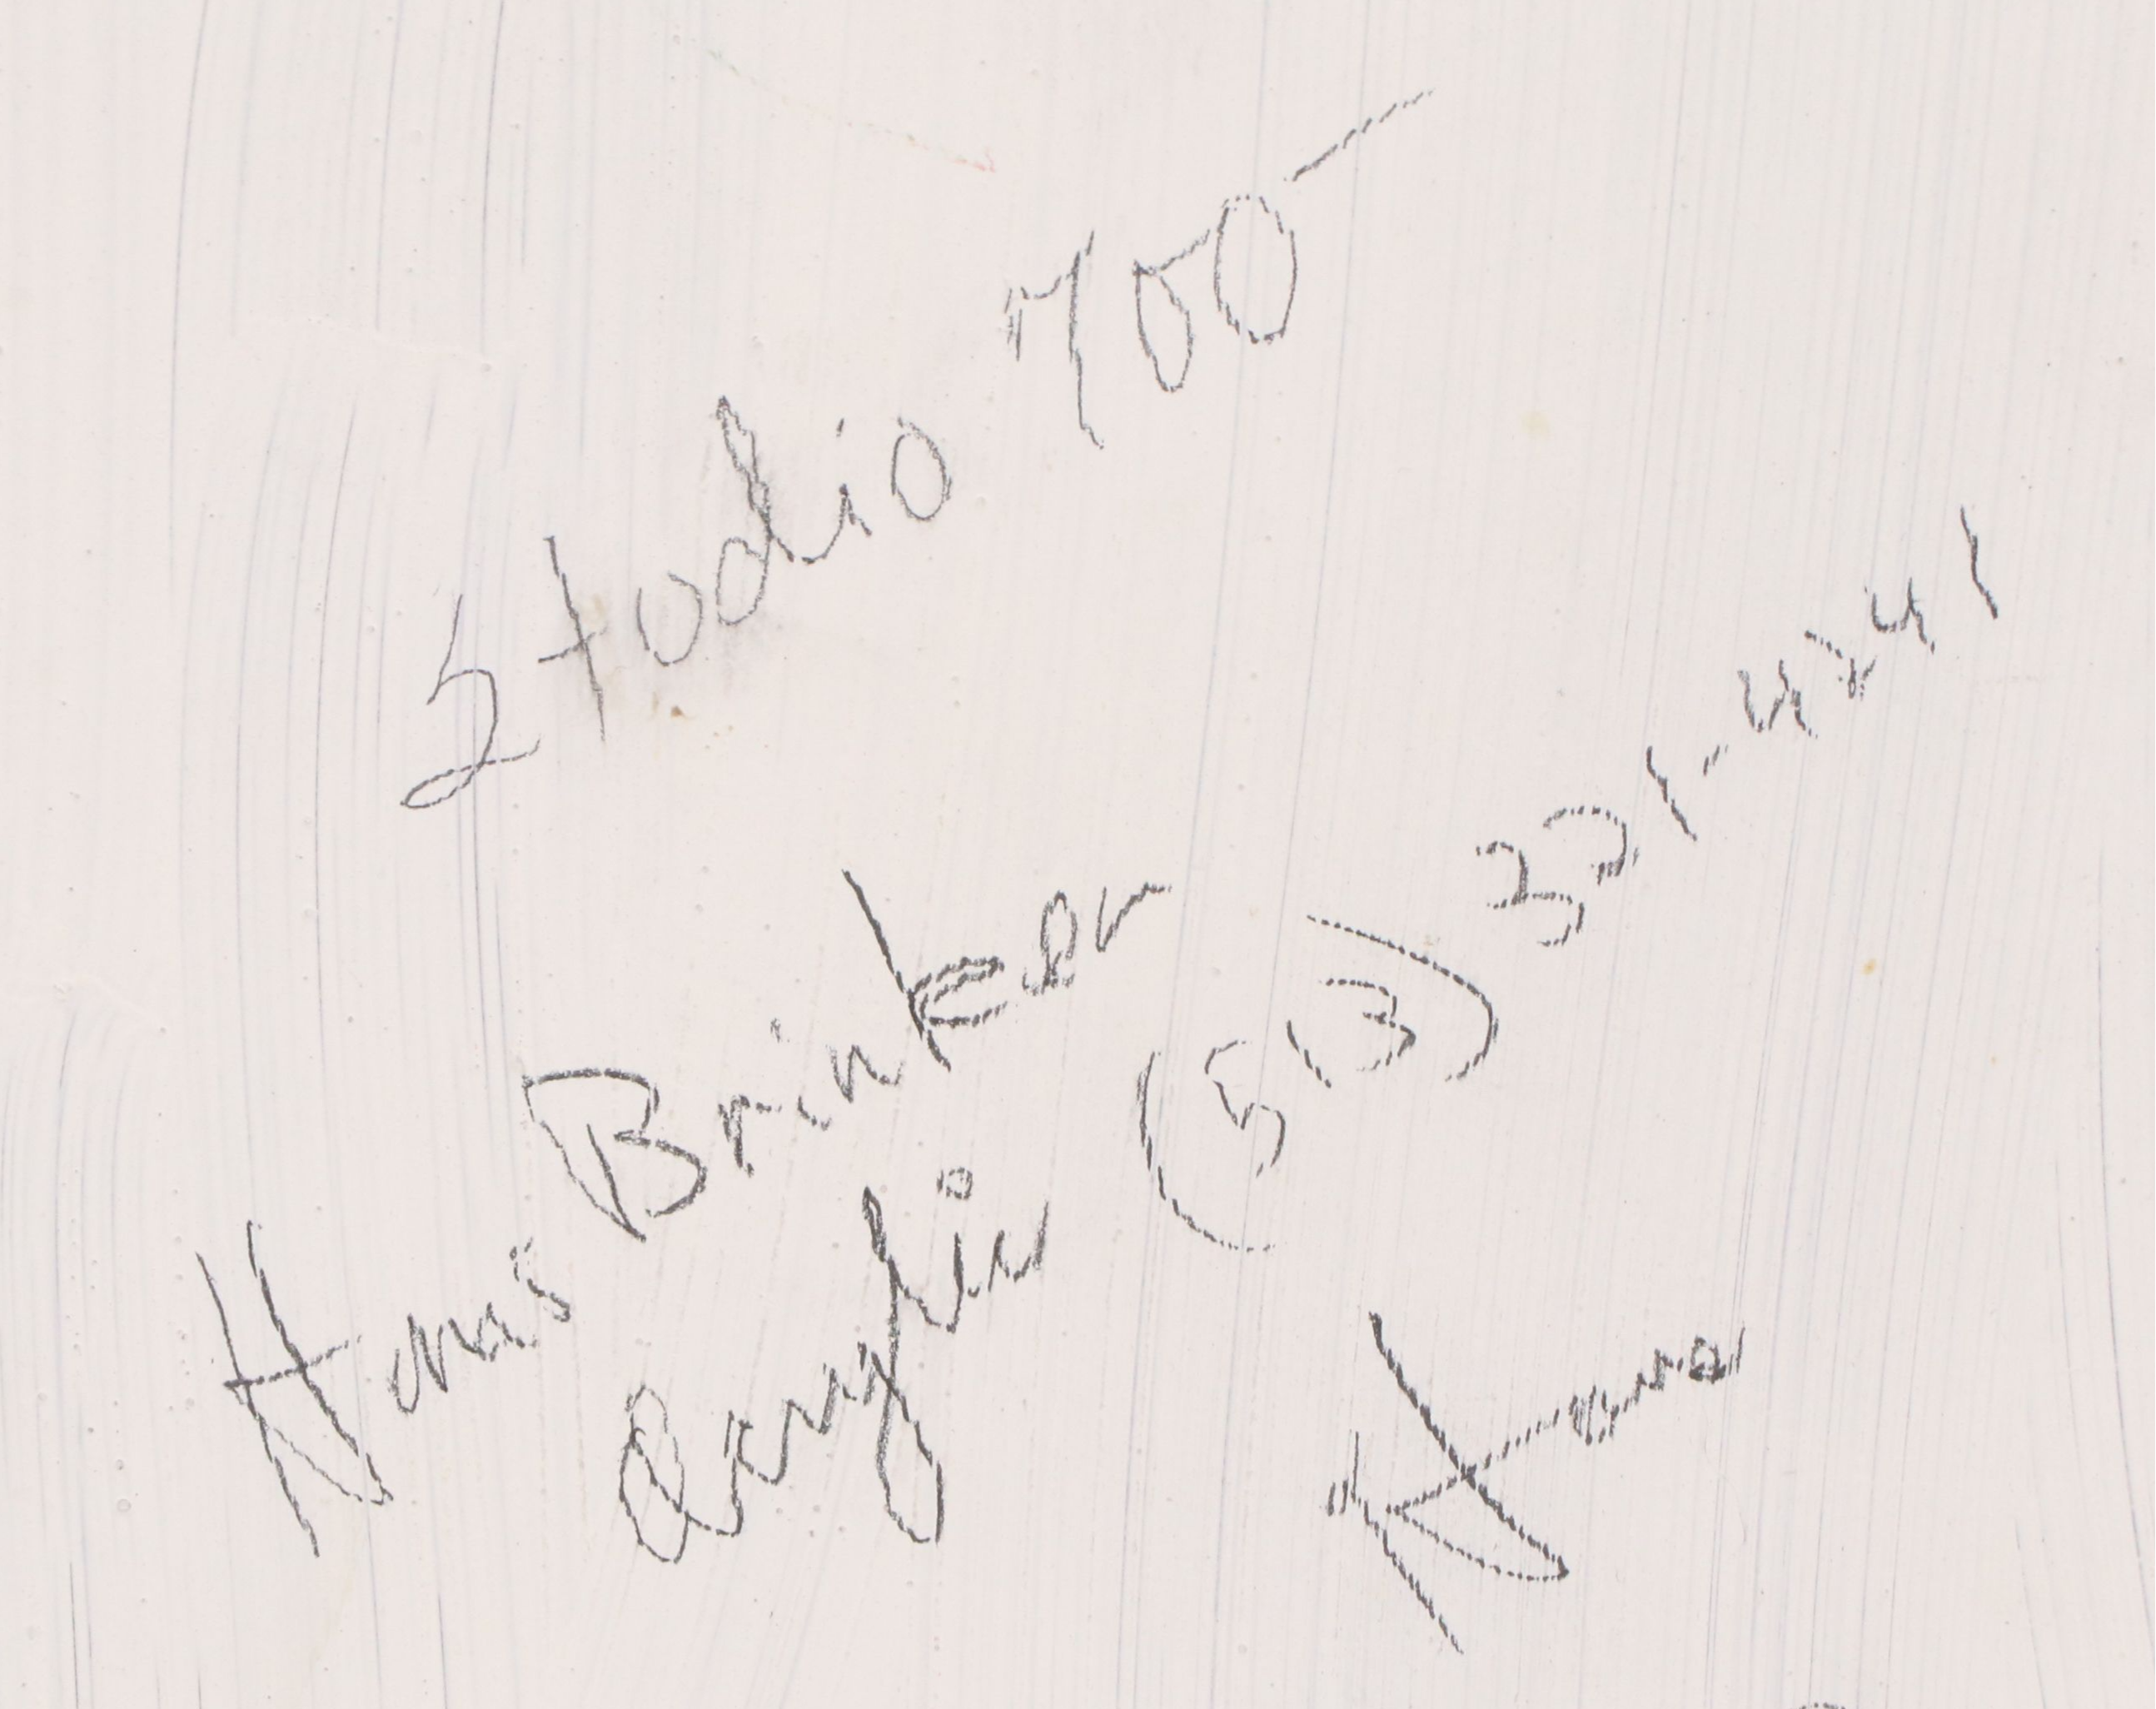 Studio 700 —
Hans Brinker
acrylic (513) 321-4241
Hana